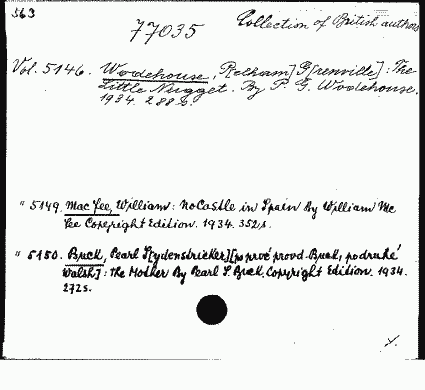 563
77035
Collection of British authors
Vol. 5146. Wodehouse, P[elham] G[renville]: The
Little Nugget. By P. G. Wodehouse.
1934. 288 s.
" 5149. Mac Fee, William: No Castle in Spain By William Mc
Fee Copyright Edition. 1934. 352 s.
" 5150. Buck, Pearl S[ydenstricker] [po prvé provd. Buck, po druhé
Walsh]: The Mother By Pearl S. Buck. Copyright Edition. 1934.
272 s.